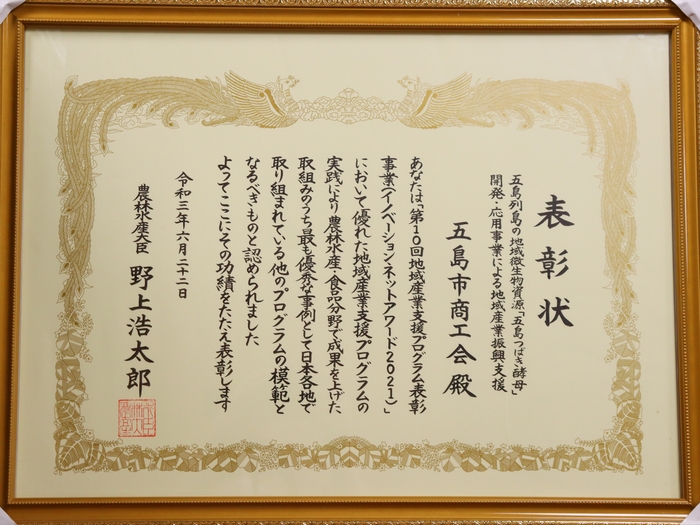 表彰状
五島列島の地域微生物資源「五島つばき酵母」
開発・応用事業による地域産業振興支援
五島市商工会殿
あなたは「第10回地域産業支援プログラム表彰
事業(イノベーションネットアワード2021)」
において優れた地域産業支援プログラムの
実践により農林水産・食品分野で成果を上げた
取組みのうち最も優秀な事例として日本各地で
取り組まれている他のプログラムの模範と
なるべきものと認められました
よってここにその功績をたたえ表彰します
令和三年六月二十二日
農林水産大臣 野上浩太郎